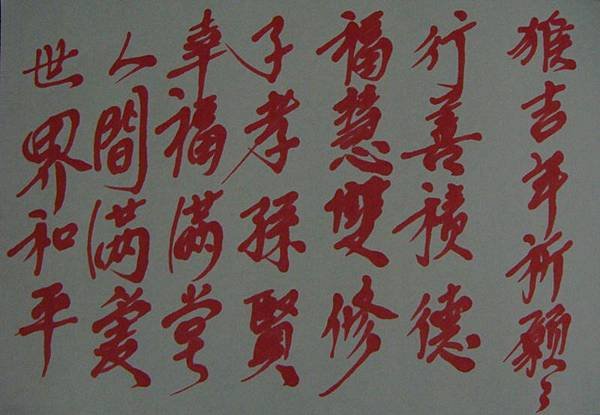 猴吉年祈願:
行善積德
福慧雙修
子孝孫賢
幸福滿堂
人間满愛
世界和平